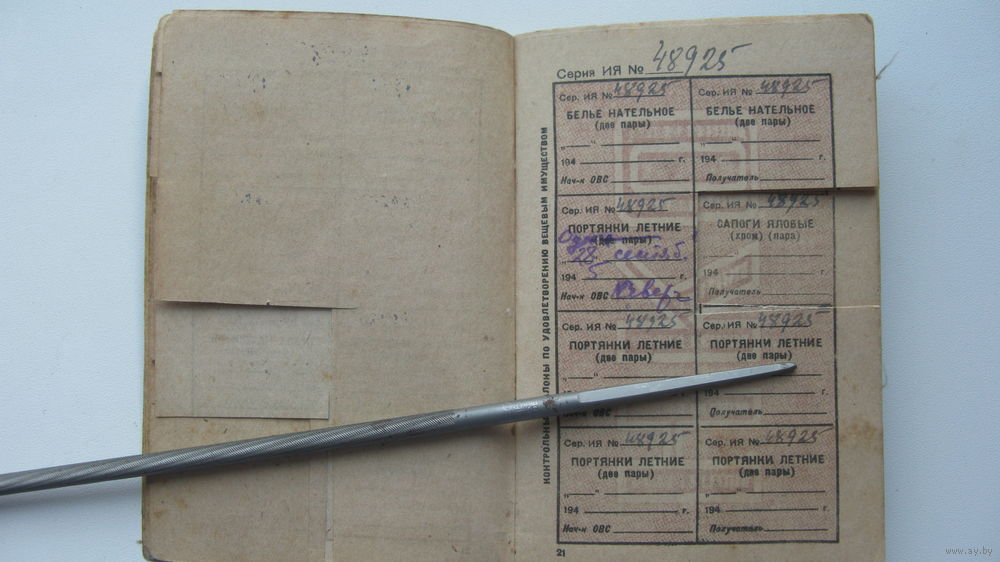 Серия ИЯ № 48925
КОНТРОЛЬНЫ ЛОНЫ ПО УДОВЛЕТВОРЕНИЮ ВЕЩЕВЫМ ИМУЩЕСТВОМ
Сер. ИЯ № 48925
БЕЛЬЕ НАТЕЛЬНОЕ
(две пары)
„ “
194 г.
Нач-к ОВС
Сер. ИЯ № 48925
БЕЛЬЕ НАТЕЛЬНОЕ
(две пары)
„ “
194 г.
Получатель
Сер. ИЯ № 48925
ПОРТЯНКИ ЛЕТНИЕ
(две пары)
28 сентяб.
194 5 г.
Нач-к ОВС
Сер. ИЯ № 48925
САПОГИ ЯЛОВЫЕ
(хром) (пара)
194 г.
Получатель
Сер. ИЯ № 48925
ПОРТЯНКИ ЛЕТНИЕ
(две пары)
„ “
194
Нач-к ОВС
Сер. ИЯ № 48925
ПОРТЯНКИ ЛЕТНИЕ
(две пары)
194 г.
Получатель
Сер. ИЯ № 48925
ПОРТЯНКИ ЛЕТНИЕ
(две пары)
„ “
194 г.
Нач-к ОВС
Сер. ИЯ № 48925
ПОРТЯНКИ ЛЕТНИЕ
(две пары)
„ “
194 г.
Получатель
21
www.ay.by